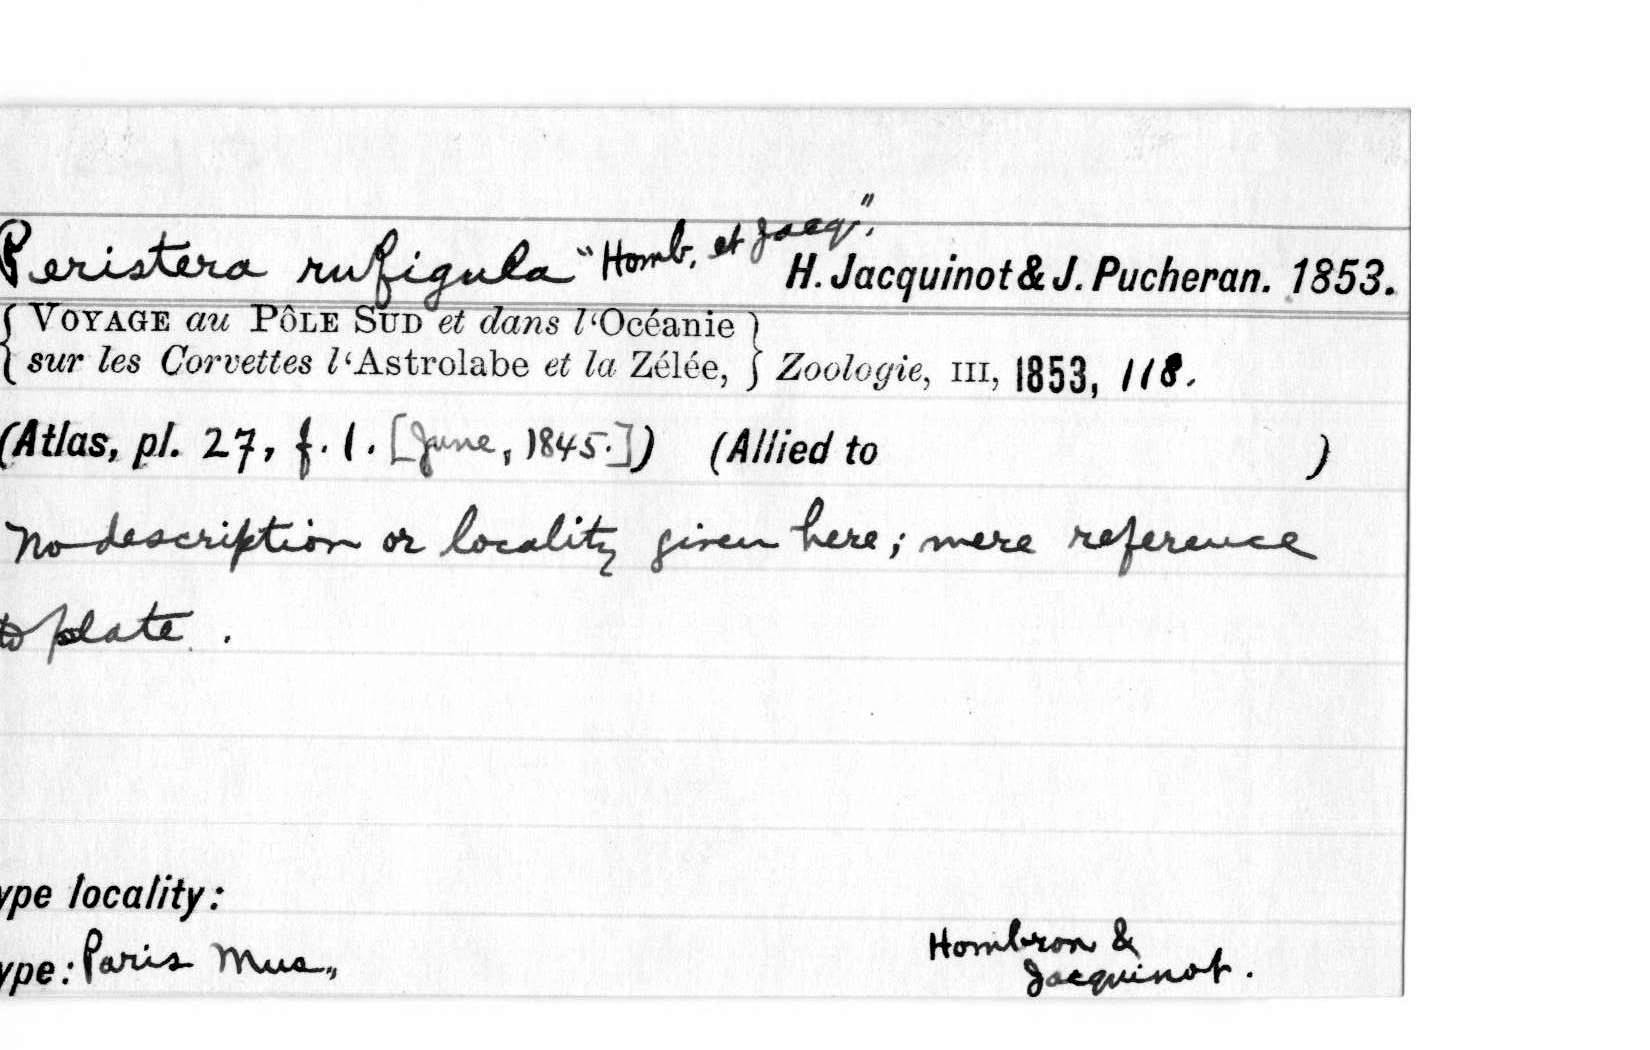 Peristera rufigula "Homb. et Jacq.", H. Jacquinot & J. Pucheran. 1853.
{ VOYAGE au PÔLE SUD et dans l‘Océanie }
{ sur les Corvettes l‘Astrolabe et la Zélée, } Zoologie, III, 1853, 118.
(Atlas, pl. 27, f. 1. [June, 1845.]) (Allied to )
No description or locality given here; mere reference
to plate.
ype locality:
ype: Paris Mus.,
Hombron &
Jacquinot.